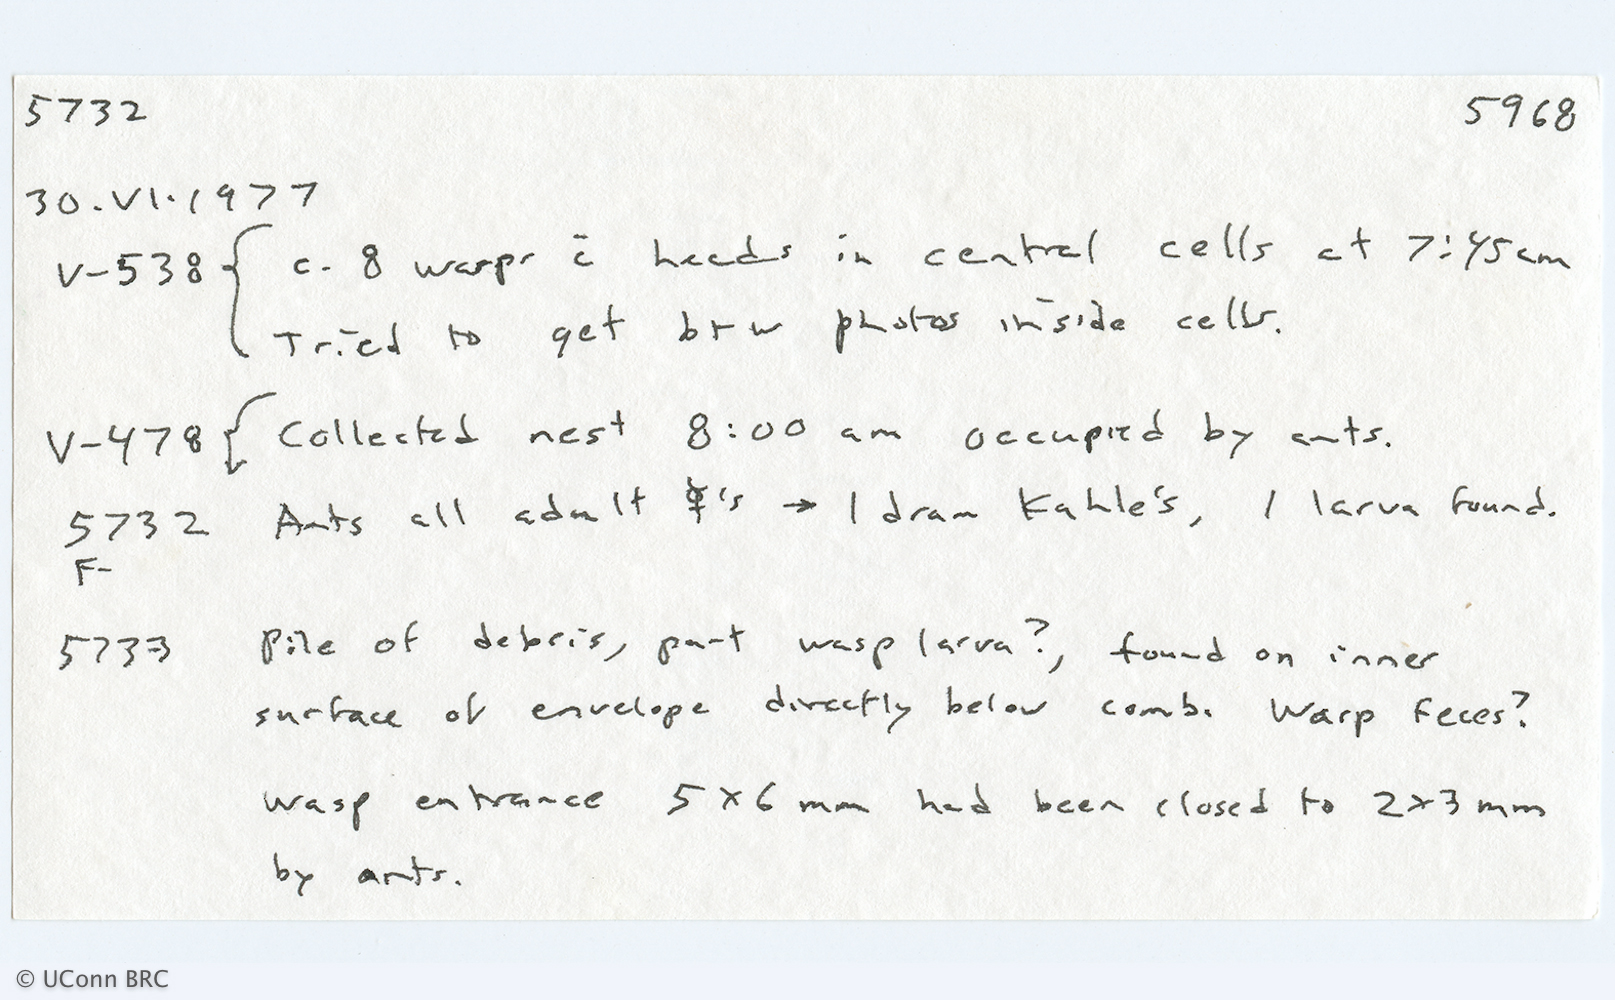 5732 5968
30.VI.1977
V-538 { c. 8 wasps c̄ heads in central cells at 7:45am
Tried to get b+w photos inside cells.
V-478 { Collected nest 8:00 am occupied by ants.
5732 Ants all adult ☿'s → 1 dram Kahle's, 1 larva found.
F-
5733 Pile of debris, part wasp larva?, found on inner
surface of envelope directly below comb. Wasp feces?
Wasp entrance 5×6 mm had been closed to 2×3 mm
by ants.
© UConn BRC